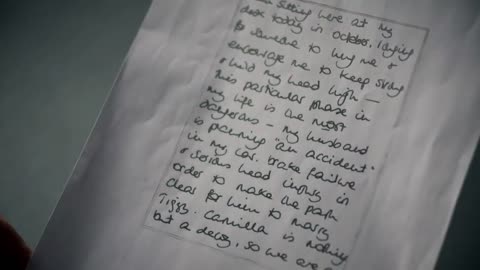 sitting here at my
desk today in october, longing
for someone to hug me &
encourage me to keep strong
& hold my head high —
this particular phase in
my life is the most
dangerous – my husband
is planning 'an accident'
in my car. brake failure
& serious head injury in
order to make the path
clear for him to marry
Tiggy. Camilla is nothing
but a decoy, so we are